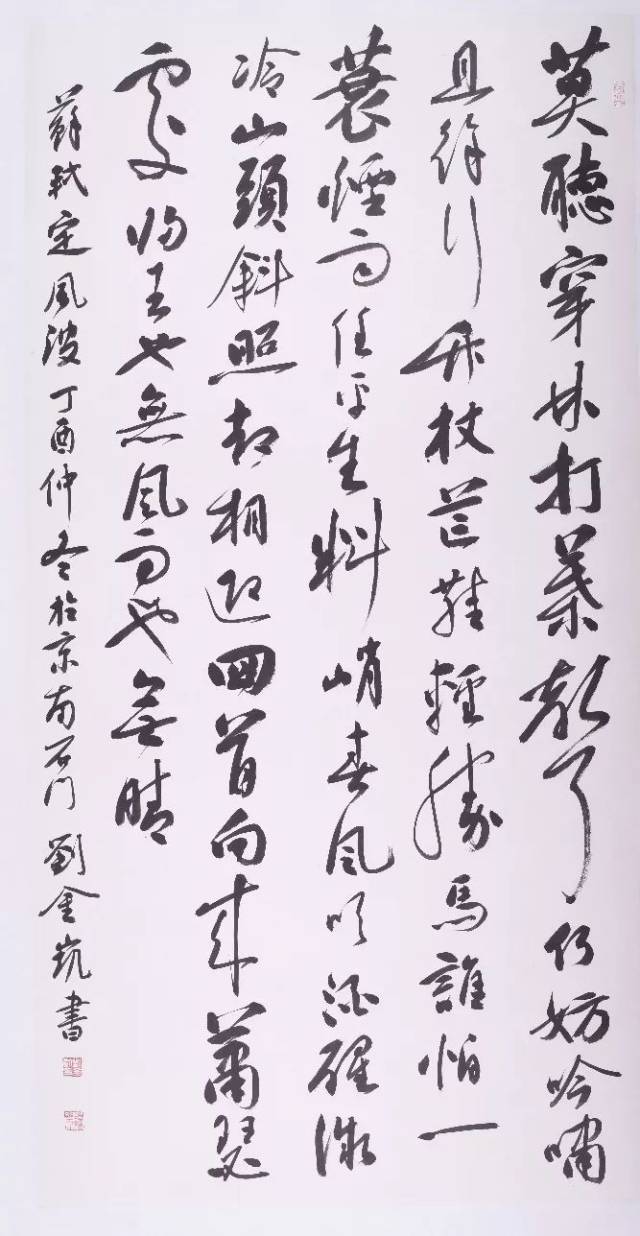 莫聽穿林打葉聲何妨吟嘯
且徐行竹杖芒鞋輕勝馬誰怕一
蓑煙雨任平生料峭春風吹酒醒微
冷山頭斜照却相迎回首向来蕭瑟
處歸去也無風雨也無晴
蘇軾定風波丁酉仲冬於京南石門劉金書